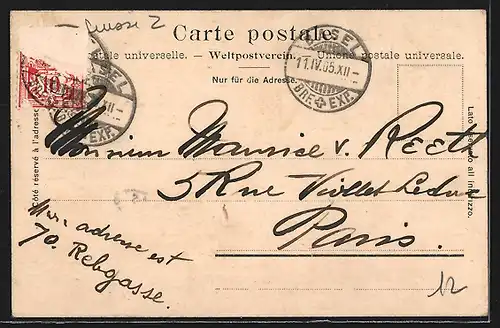 Suisse 2
Carte postale.
postale universelle. — Weltpostverein. — Unione postale universale.
Nur für die Adresse.
BASEL
11.IV.05.XII
BRF. EXP.
BASEL
XII
EXP.
10
Côté réservé à l'adresse
Lato riservato all indirizzo.
Monsieur Maurice v. Reeth
5 Rue Viollet Leduc
Paris.
adresse est
70. Rebgasse.
12